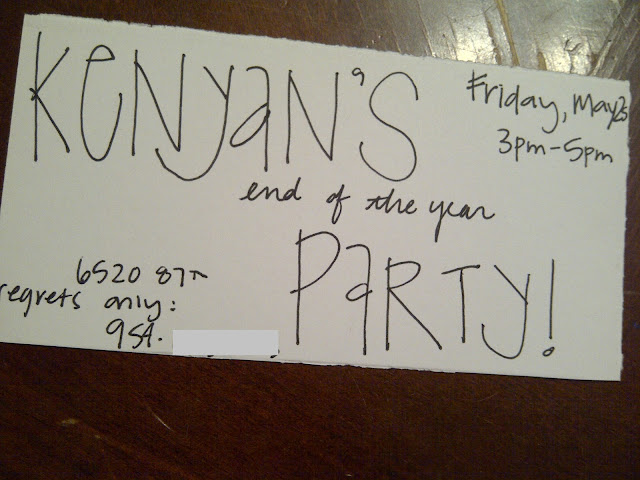 KeNyaN'S
Friday, May 25
3pm-5pm
end of the year
PaRTy!
6520 87th
regrets only:
954.